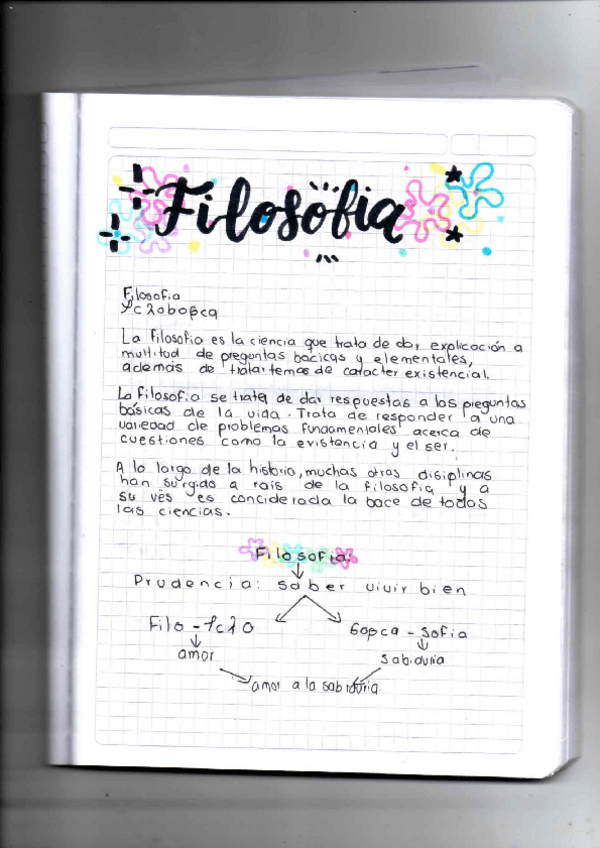 Filosofia
Filosofia
La filosofia es la ciencia que trata de dar explicación a
multitud de preguntas bacicas y elementales,
además de tratar temas de caracter existencial.
La filosofia se trata de dar respuestas a las preguntas
básicas de la vida. Trata de responder a una
variedad de problemas fundamentales acerca de
cuestiones como la existencia y el ser.
A lo largo de la historia, muchas otras disiplinas
han surgido a rais de la filosofia y a
su vés es conciderada la bace de todas
las ciencias.
Filosofia
Prudencia: saber vivir bien
Filo - sofia
amor sabiduria
amor a la sabiduria.